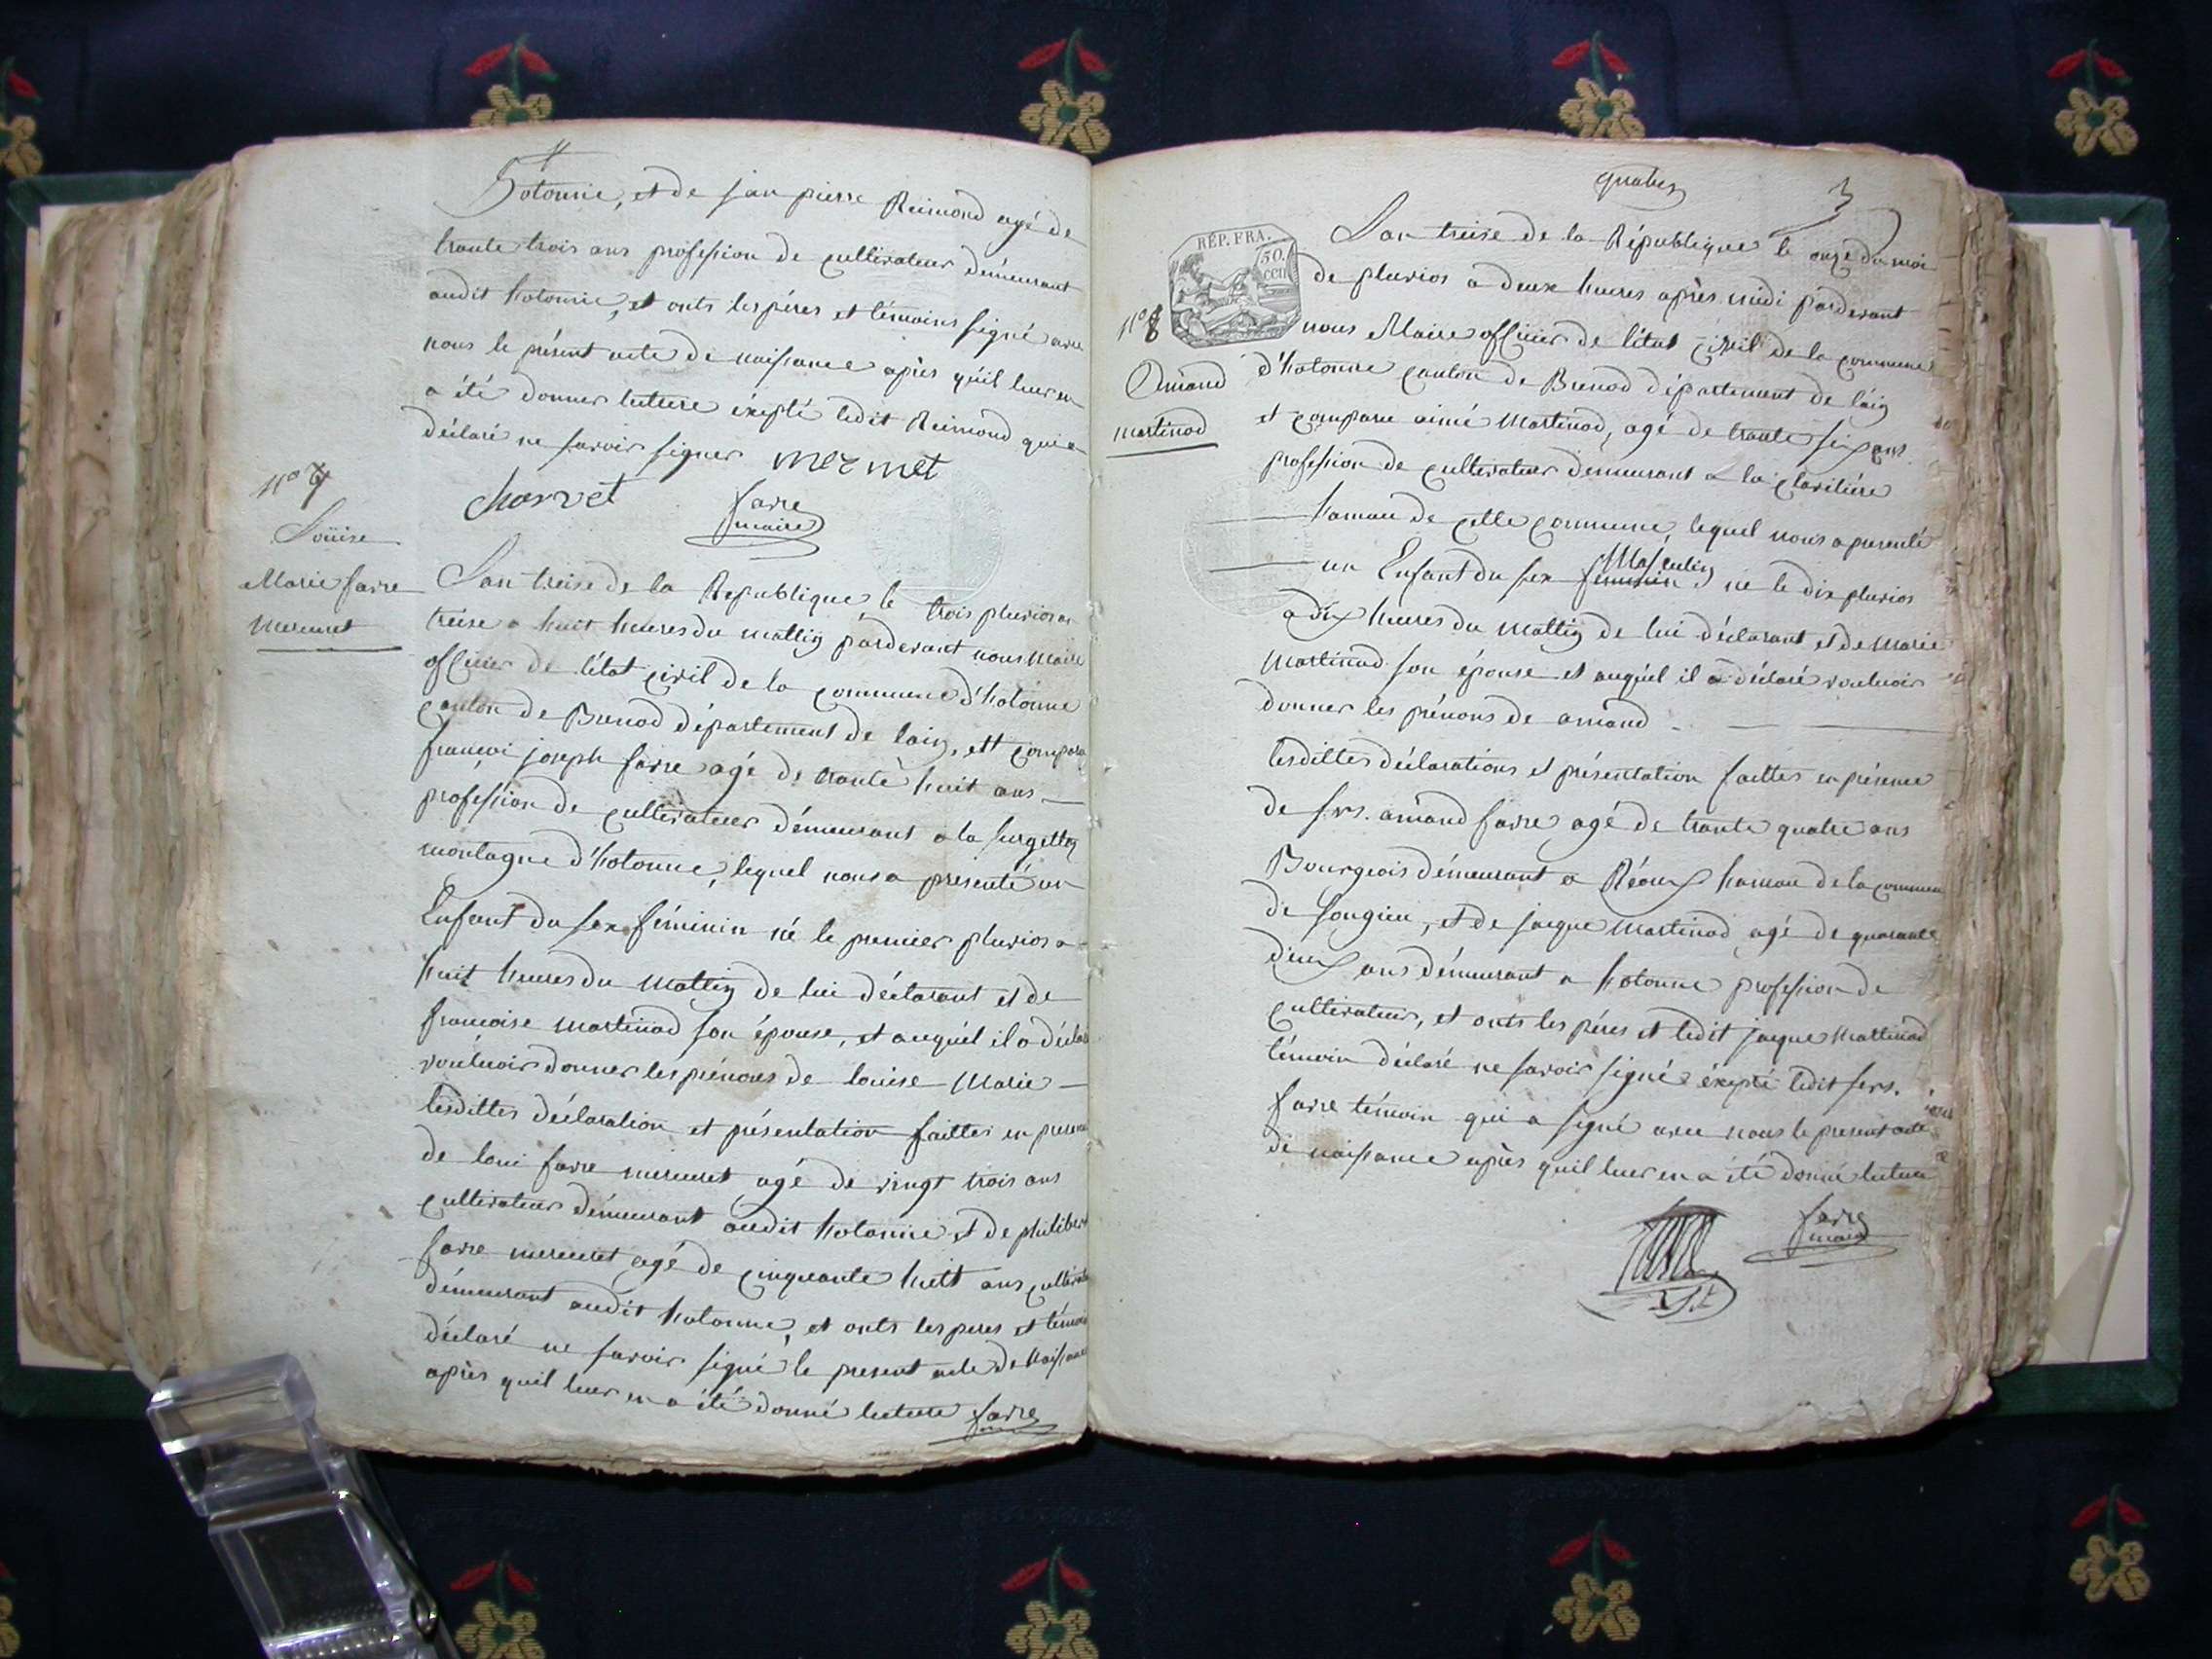 hotonne, et de jean pierre Reimond agé de
trante trois ans profession de cultivateur démeurant
audit hotonne, et onts les péres et témoins signé avec
nous le présent acte de naissance après qu'il leur en
a été donner lecture éxepté ledit Reimond qui a
déclaré ne savoir signer mermet
charvet favre
maire
n° 7
Loüise
Marie favre
mercuret
L'an treise de la Republique, le trois pluvios an
treise a huit heures du mattin pardevant nous Maire
officier de l'état civil de la commune d'hotonne
canton de Brenod département de l'ain, ett comparu
françoi joseph favre agé de trante huit ans
profession de cultivateur démeurant a la
montagne d'hotonne, lequel nous a presenté un
Enfant du sex féminin né le premier pluvios a
huit heures du mattin de lui déclarant et de
francoise martinod son épouse, et auquél il a déclaré
vouluoir donner les prénons de louise Marie
lesdittes déclaration et présentation faittes en presence
de loui favre mercuret agé de vingt trois ans
cultivateur démeurant audit hotonne et de philibert
favre mercuret agé de cinquante huitt ans cultivateur
démeurant audit hotonne, et onts les peres et témoins
déclaré ne savoir signé le present acte de naissance
après quil leur en a été donné lecture favre
3
RÉP. FRA.
50.
CEN
n° 8
Amand
martinod
L'an treise de la République le onze du moi
de pluvios a deux heures après midi pardevant
nous Maire officier de l'état civil de la commune
d'hotonne canton de Brenod département de l'ain
et comparu aimé Martinod, agé de trante six ans
profession de cultivateur demeurant a la
hamau de cette commune, lequel nous a presenté
un Enfant du sex féminin Masculin né le dix pluvios
a dix heures du mattin de lui déclarant et de marie
Martinod son épouse et auquél il a déclaré vouluoir
donner les prénons de amand
lesdittes déclarations et présentation faittes en présence
de frs. amand favre agé de trante quatre ans
Bourgeois démeurant a hamau de la commune
de songieu, et de jacque Martinod agé de quarante
deux ans démeurant a hotonne profession de
cultivateur, et onts les péres et ledit jacque Martinod
témoin déclaré ne savoir signé éxepté ledit frs.
favre témoin qui a signé avec nous le present acte
de naissance après quil leur en a été donné lecture
favre
maire